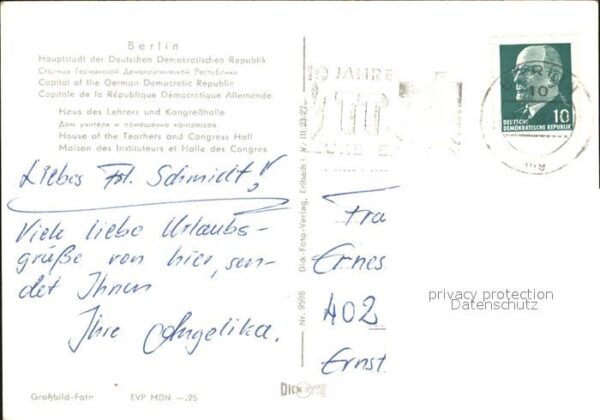 Berlin
Hauptstadt der Deutschen Demokratischen Republik
Столица Германской Демократической Республики
Capital of the German Democratic Republic
Capitale de la République Démocratique Allemande
Haus des Lehrers und Kongreßhalle
Дом учителя и помещение конгрессов
House of the Teachers and Congress Hall
Maison des Instituteurs et Halle des Congrès
Liebes Frl. Schmidt!
Viele liebe Urlaubs-
grüße von hier, sen-
det Ihnen
Ihre Angelika.
Großbild-Foto
EVP MDN —.25
Nr. 9598 Dick-Foto-Verlag, Erlbach i. V. III 23 27
DICK
10 JAHRE
10
DEUTSCHE
DEMOKRATISCHE REPUBLIK
Fra
Ernes
402
Ernst.
privacy protection
Datenschutz